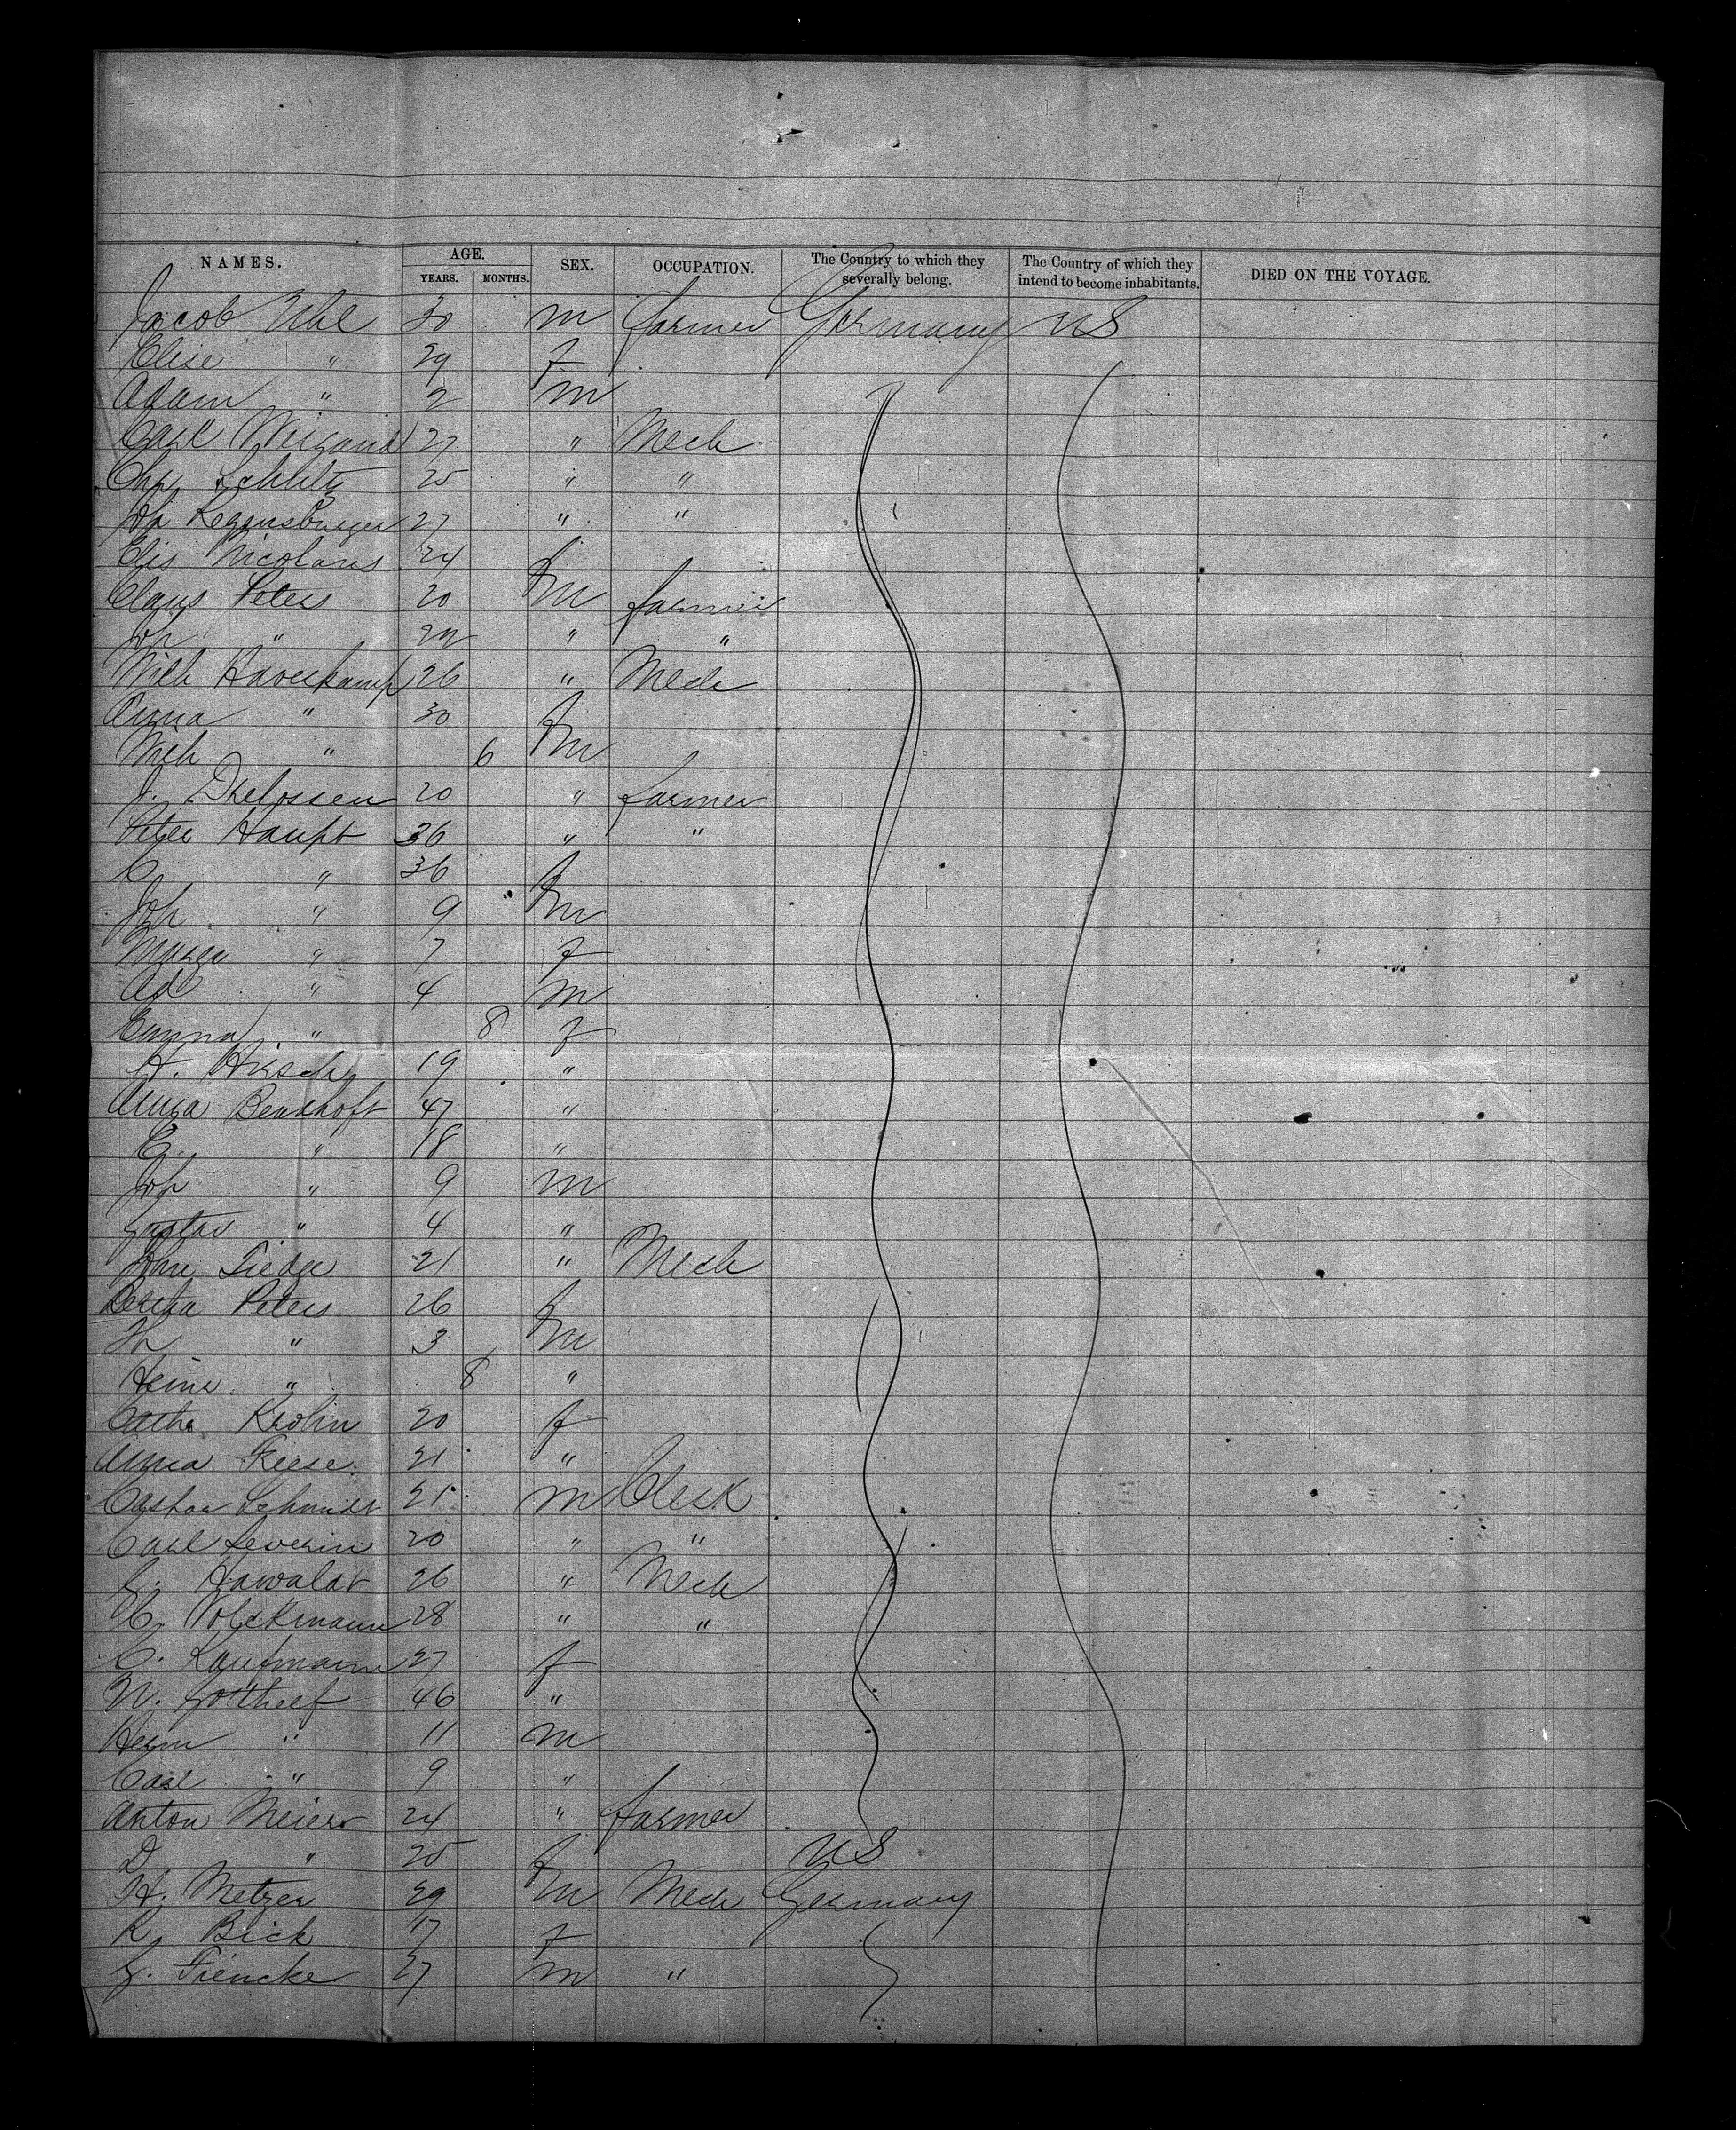 NAMES. AGE. SEX. OCCUPATION. The Country to which they severally belong. The Country of which they intend to become inhabitants. DIED ON THE VOYAGE.
YEARS. MONTHS.
Jacob Uhl 30 m farmer Germany US
Elise " 29 f
Adam " 2 m
Carl Weigand 27 " Mech
Chr Schlitz 25 " "
Regensburger 27 " "
Elis Nicolaus 24 f
Claus Peters 20 m farmer
Joh " 22 " "
Wilh Haverkamp 26 " Mech
Anna " 30 f
Wilh " 6 m
J. 20 " farmer
Peter Haupt 36 " "
C " 36 f
Joh " 9 m
Marga " 7 f
Ad " 4 m
Emma " 8 f
H. Hirsch 19 "
Anna Benkhoff 47 "
E. " 18 "
Joh " 9 m
Gustav " 4 "
John Tiedge 21 " Mech
Bertha Peters 26 f
" 3 m
Heinr. " 8 "
Cath. Krolin 20 f
Anna Friese 21 "
Schmidt 21 m Clerk
Carl Severin 20 " "
G. Hawalat 26 " Mech
Volckmann 28 " "
C. Kaufmann 27 f
N. Gottheef 46 "
Herm " 11 m
Carl " 9 "
Anton Meier 24 " farmer
D " 25 f US
H. Metzger 29 m Mech Germany
R. Bick 17 f
G. Tiencke 27 m "